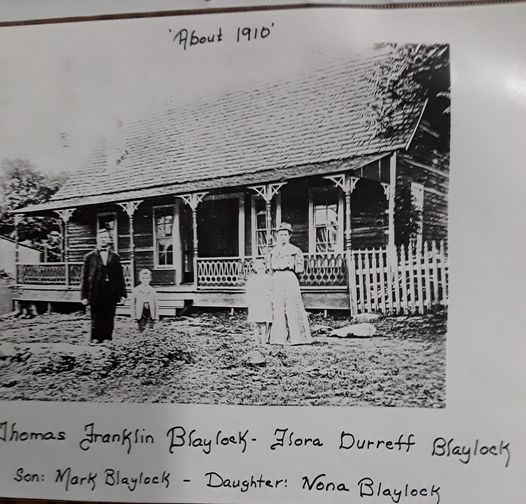 'About 1910'
Thomas Franklin Blaylock - Flora Durrett Blaylock
Son: Mark Blaylock - Daughter: Nona Blaylock